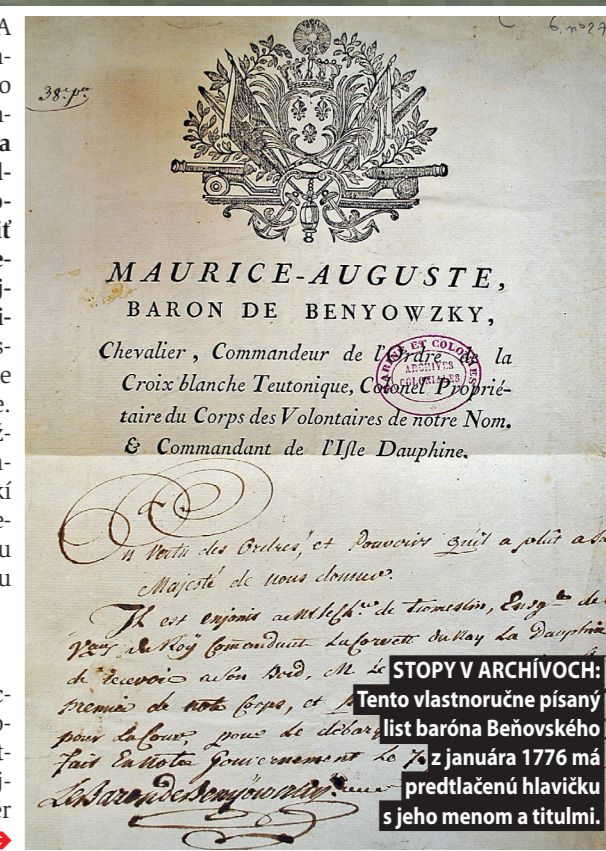 6. nº27
38e pce
MAURICE-AUGUSTE,
BARON DE BENYOWZKY,
Chevalier, Commandeur de l'Ordre de la
Croix blanche Teutonique, Colonel Proprié-
taire du Corps des Volontaires de notre Nom.
& Commandant de l'Isle Dauphine.
MARINE ET COLONIES
ARCHIVES
COLONIALES
En Vertu des Ordres, et Pouvoirs qu'il a plût a Sa
Majesté de nous donner.
Il est enjoint a de Tromeslin, de
du Roÿ Comandant La Corvett du Roy La Dauphine
de recevoir a son Bord, M. Le
de notre Corps, et
pour La Cour, pour le
Fait En notre Gouvernement Le
Le Baron de
STOPY V ARCHÍVOCH:
Tento vlastnoručne písaný
list baróna Beňovského
z januára 1776 má
predtlačenú hlavičku
s jeho menom a titulmi.